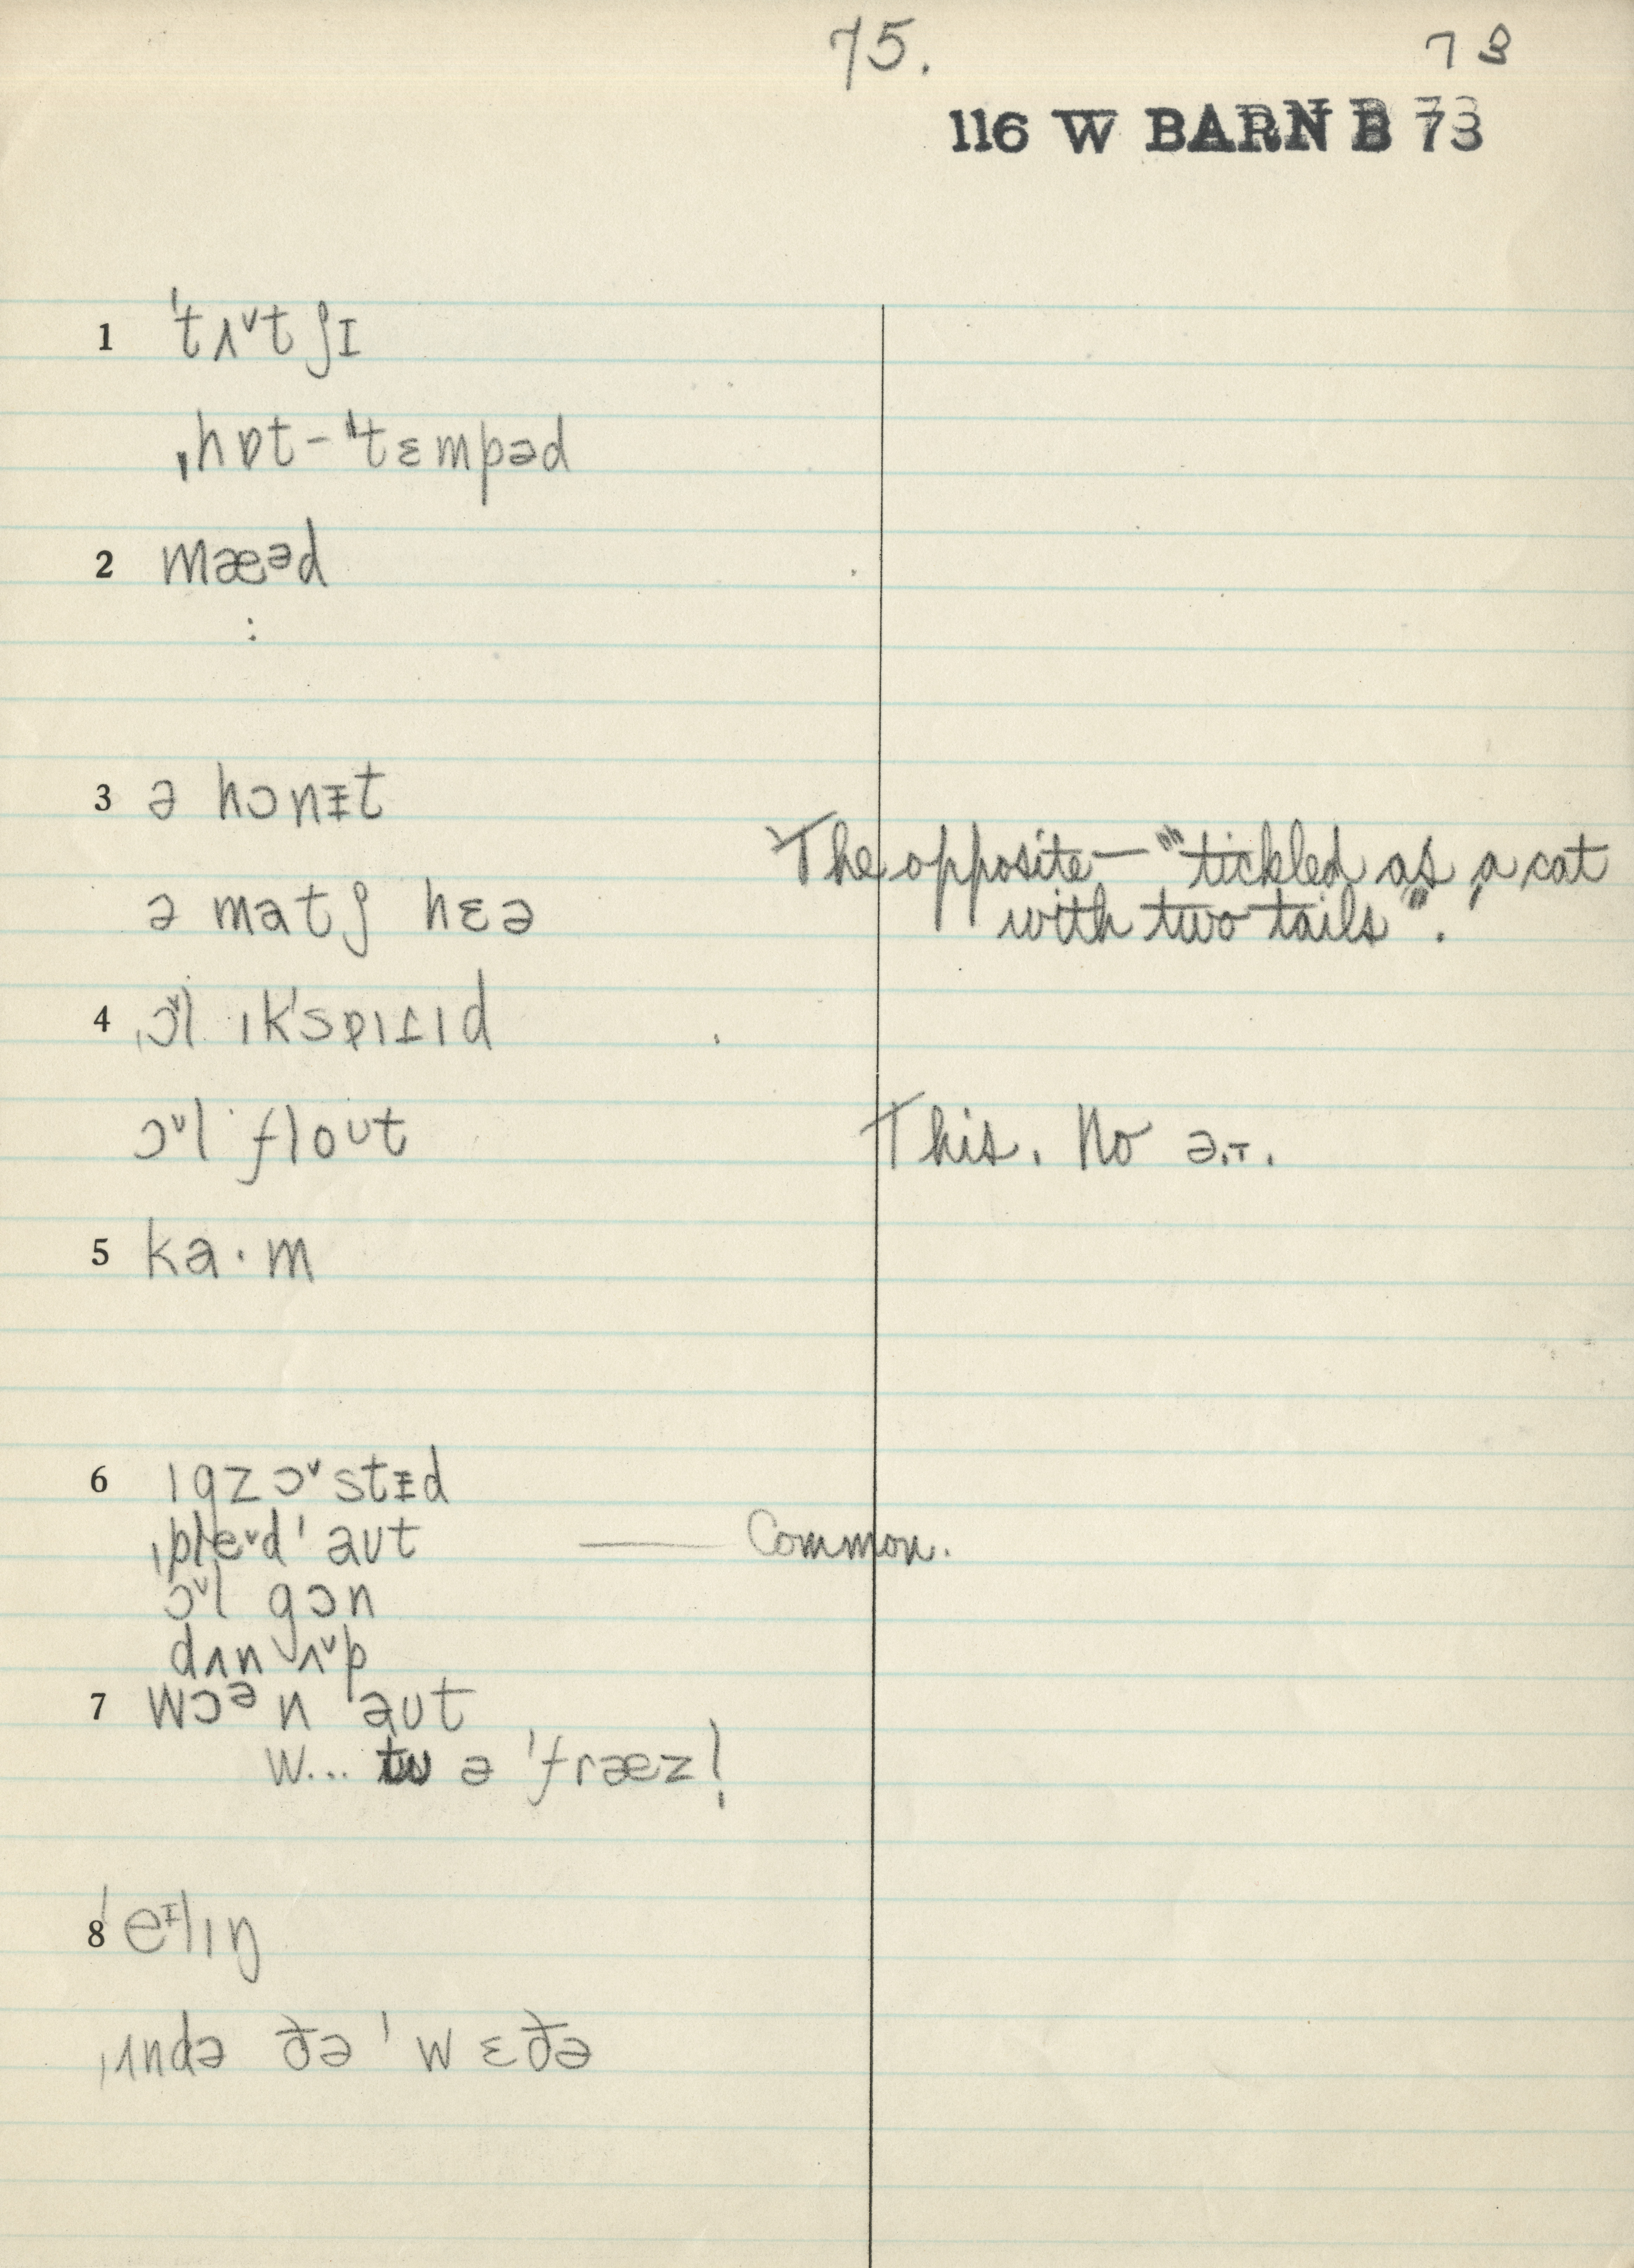 75.
73
116 W BARN B 73
1 ˈtʌᵛtʃɪ
ˌhɒt-ˈtɛmpəd
2 mæᵊd
:
3 ə hɔnᵻt
The opposite — "tickled as a cat
ə matʃ hɛə
with two tails".
4 ˌɔᵛl ɪkˈspaɪɹɪd
ɔᵛl flout
This. No ə.T.
5 ka·m
6 ɪgzɔᵛstᵻd
ˌpleᵛdˈaut — Common.
ɔᵛl gɔn
dʌn ʌᵛp
7 wɔᵊn aut
w... tu ə ˈfræz!
8 ˈeᶦlɪŋ
ˌʌndə ðə ˈwɛðə